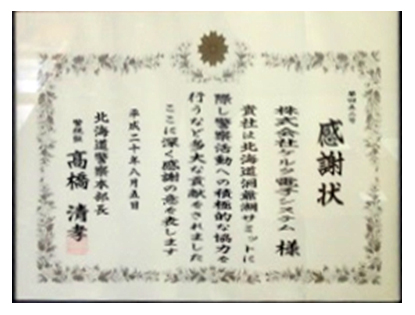 感謝状
株式会社ケルツ電子システム 様
貴社は北海道洞爺湖サミットに
際し警察活動への積極的な協力を
行うなど多大な貢献をされました
ここに深く感謝の意を表します
平成二十年八月五日
北海道警察本部長
警視監 高橋 清孝